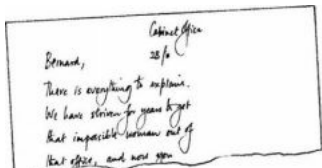 Cabinet Office
Bernard,
There is everything to explain.
We have striven for years to get
that impossible woman out of
that office, and now you